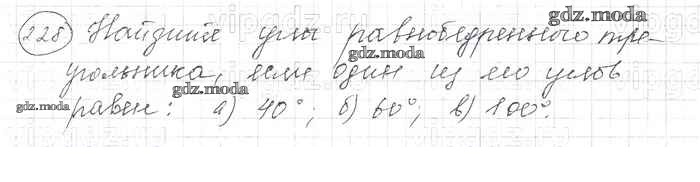 228) Найдите углы равнобедренного тре-
угольника, если один из его углов
равен: а) 40°; б) 60°; в) 100°.
gdz.moda
gdz.moda
gdz.moda
gdz.moda